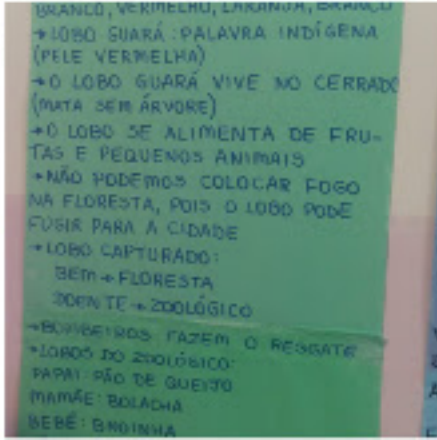 BRANCO, VERMELHO, LARANJA, BRANCO
→ LOBO GUARÁ: PALAVRA INDÍGENA
(PELE VERMELHA)
→ O LOBO GUARÁ VIVE NO CERRADO
(MATA SEM ÁRVORE)
→ O LOBO SE ALIMENTA DE FRU-
TAS E PEQUENOS ANIMAIS
→ NÃO PODEMOS COLOCAR FOGO
NA FLORESTA, POIS O LOBO PODE
FUGIR PARA A CIDADE
→ LOBO CAPTURADO:
BEM → FLORESTA
DOENTE → ZOOLÓGICO
→ BOMBEIROS FAZEM O RESGATE
→ LOBOS DO ZOOLÓGICO:
PAPAI: PÃO DE QUEIJO
MAMÃE: BOLACHA
BEBÊ: